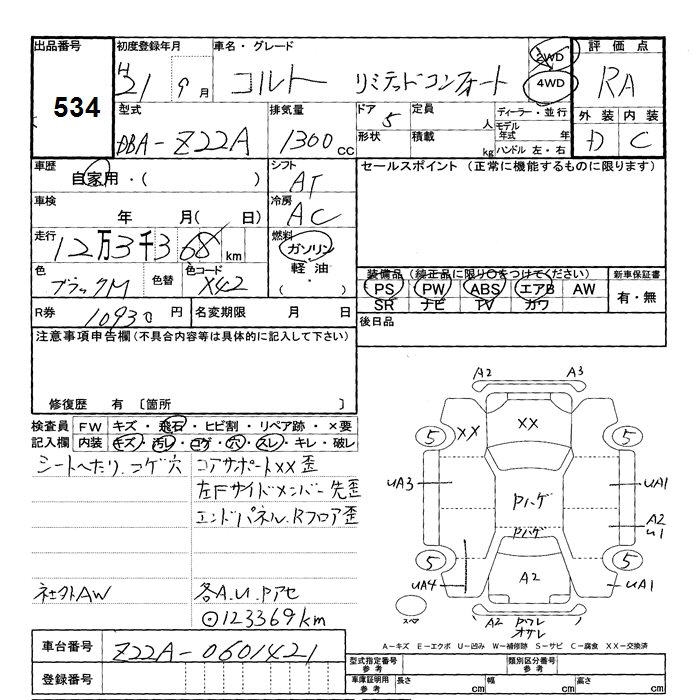 出品番号 初度登録年月 車名・グレード 2WD 評価点
534 H21 9月 コルト リミテッドコンフォート 4WD RA
型式 排気量 ドア 定員 ディーラー・並行 外装 内装
DBA-Z22A 1300cc 5 人 モデル年式 年 D C
形状 積載 kg ハンドル 左・右
車歴 シフト セールスポイント(正常に機能するものに限ります)
自家用・( ) AT
車検 冷房
年 月( 日) AC
走行 燃料
12万3千368km ガソリン
色 色替 色コード 軽油
ブラックM X42 ・( )
装備品(純正品に限り○をつけてください) 新車保証書
PS PW ABS エアB AW 有・無
SR ナビ TV カワ
R券 10930円 名変期限 月 日 後日品
注意事項申告欄(不具合内容等は具体的に記入して下さい)
修復歴 有 〔箇所 〕
検査員 FW キズ・飛石・ヒビ割・リペア跡・×要
記入欄 内装 キズ・汚レ・コゲ・穴・スレ・キレ・破レ
シートへたり.コゲ穴 コアサポートXX歪
左Fサイドメンバー先歪
エンドパネル.Rフロア歪
社外AW 各A.U.Pアセ
⊙123369km
A2 A3
XX XX
5 5
UA3 UA1
Pハゲ
A2
U1
Pハゲ
5 5
UA4 A2 UA1
スペア A2 Pワレ
オサレ
A-キズ E-エクボ U-凹み W-補修跡 S-サビ C-腐食 XX-交換済
車台番号 Z22A-0601421
登録番号
型式指定番号 参考 類別区分番号 参考
車庫証明用 参考 長さ cm 幅 cm 高さ cm